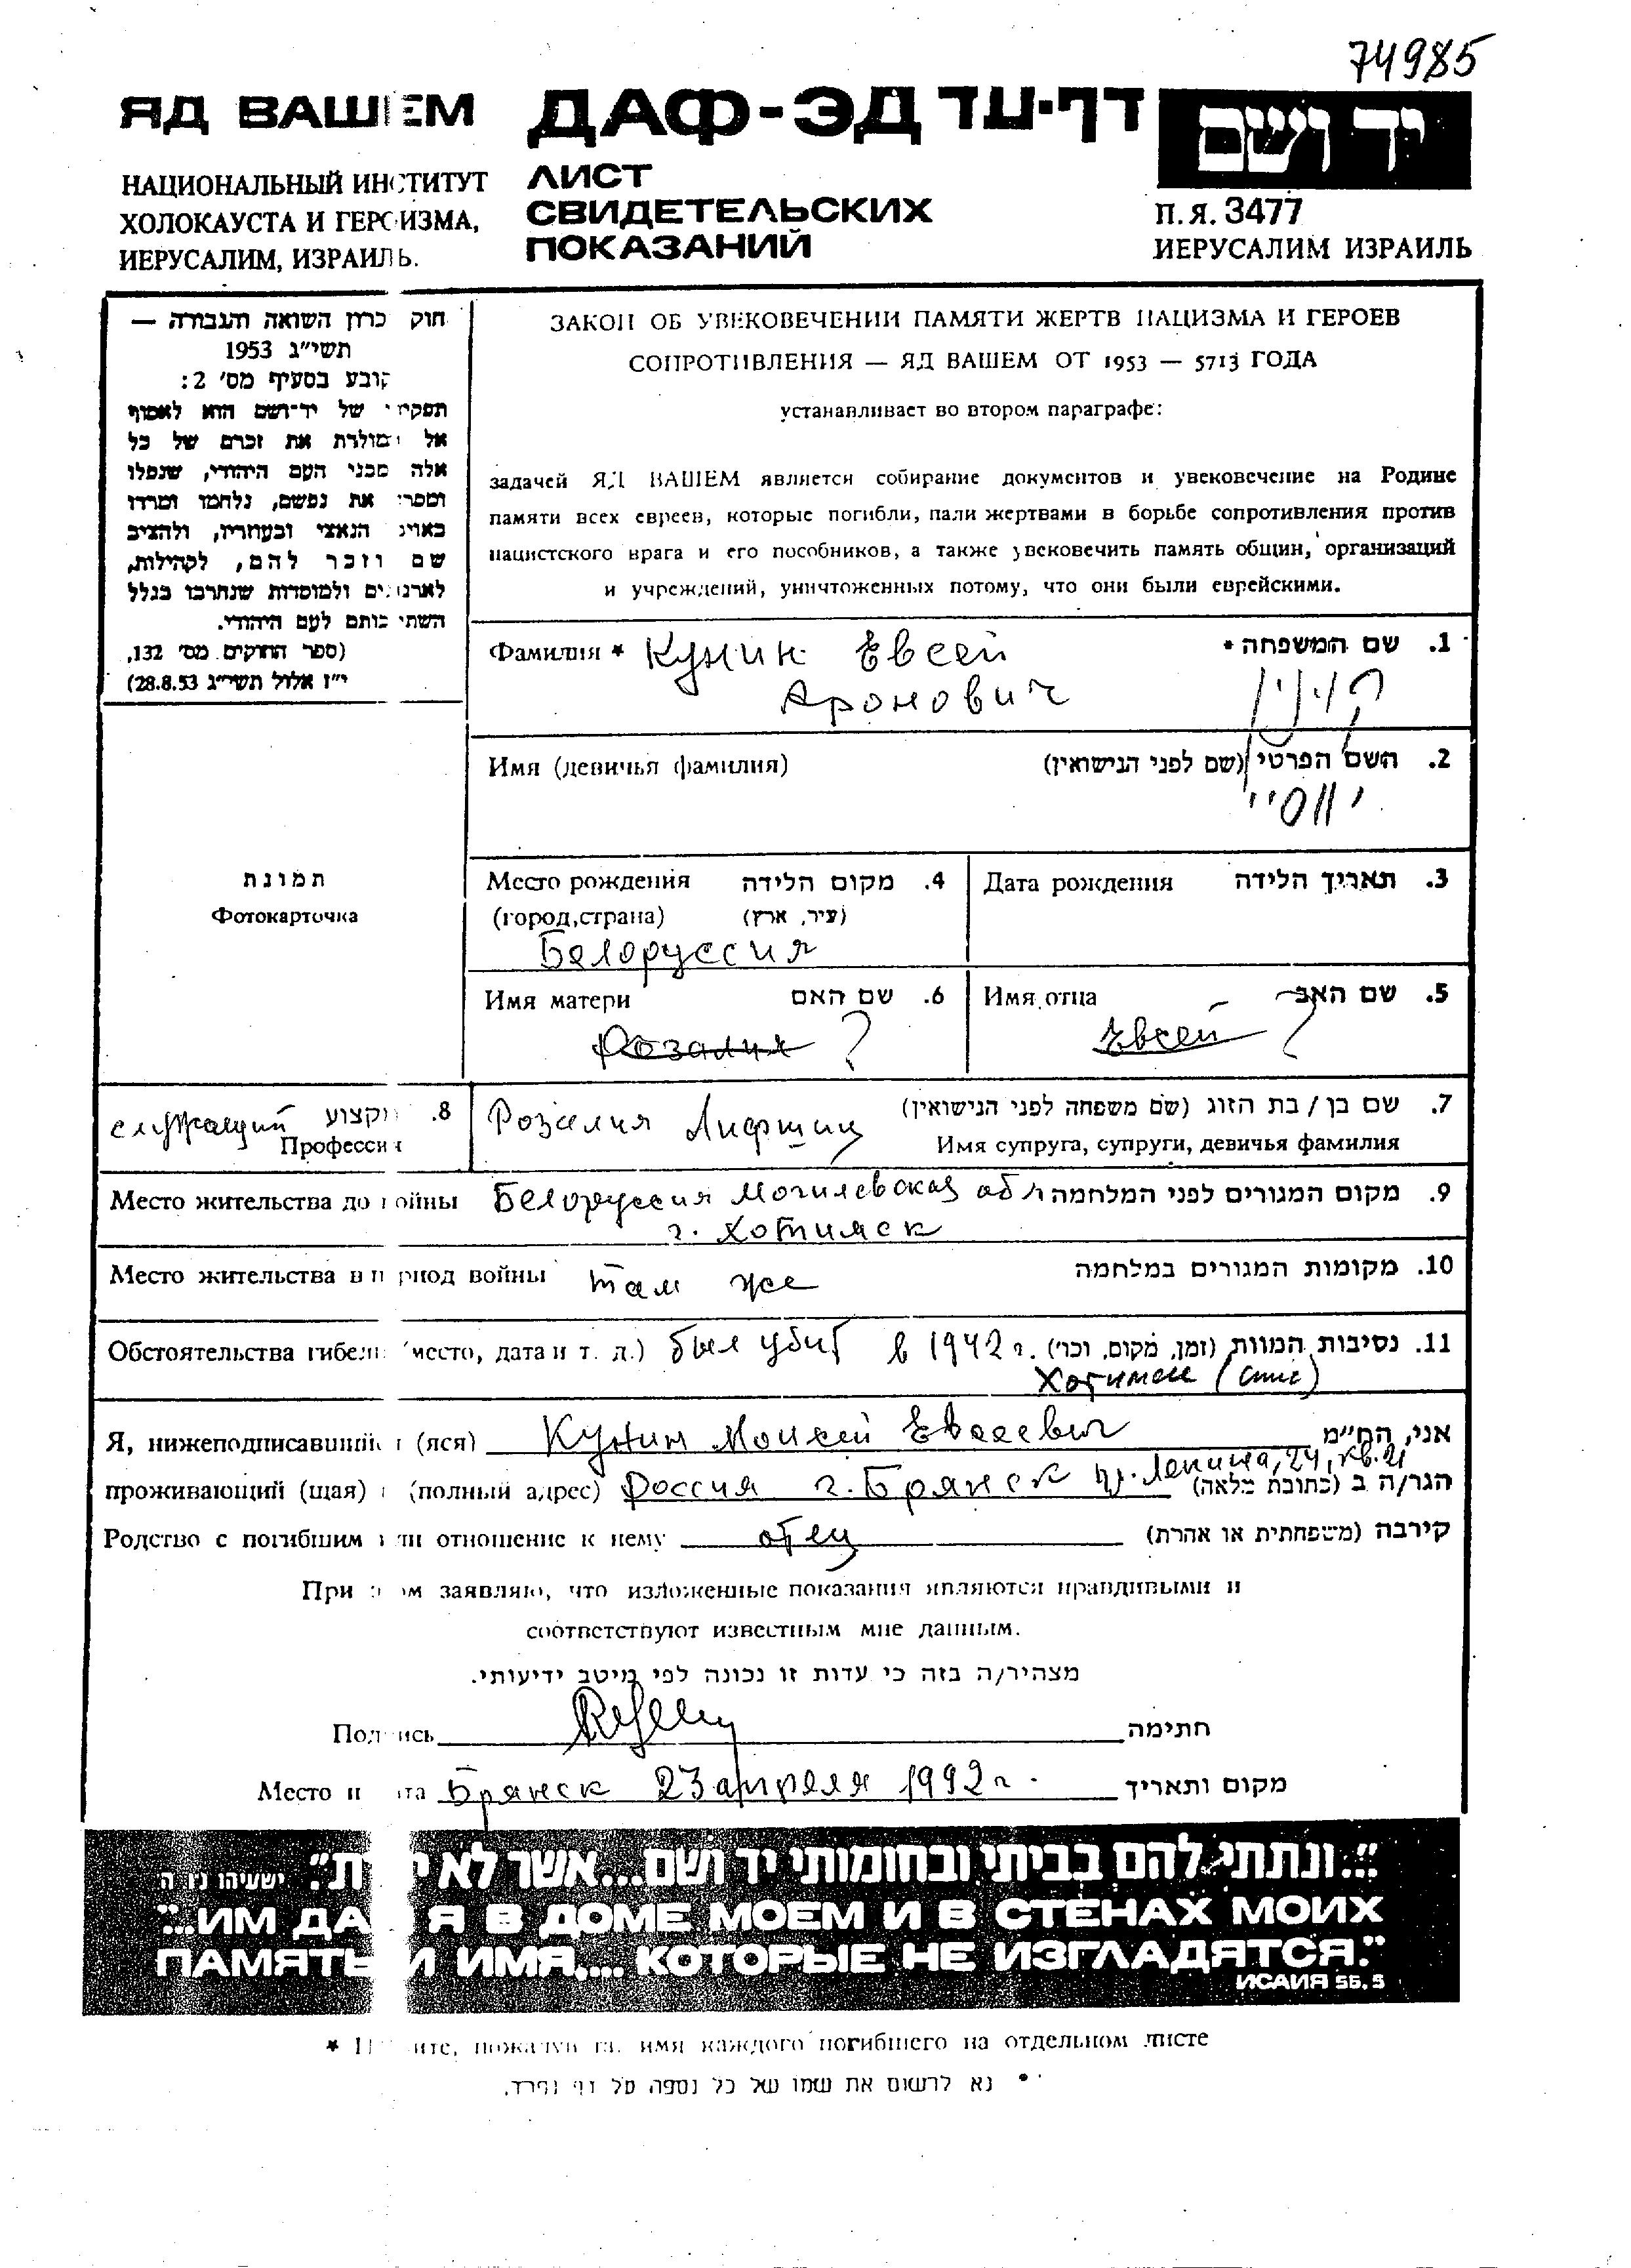 74985
ЯД ВАШЕМ ДАФ-ЭД דף-עד יד ושם
НАЦИОНАЛЬНЫЙ ИНСТИТУТ
ХОЛОКАУСТА И ГЕРОИЗМА,
ИЕРУСАЛИМ, ИЗРАИЛЬ.
ЛИСТ
СВИДЕТЕЛЬСКИХ
ПОКАЗАНИЙ
П.Я. 3477
ИЕРУСАЛИМ ИЗРАИЛЬ
חוק כרון השואה והגבורה —
תשי״ג 1953
קובע בסעיף מס׳ 2:
תפקיד של יד־ושם הוא לאסוף
אל מולדת את זכרם של כל
אלה מבני העם היהודי, שנפלו
ומסרו את נפשם, נלחמו ומרדו
באויב הנאצי ובעוזריו, ולהציב
שם וזכר להם, לקהילות,
לארגונים ולמוסדות שנחרבו בגלל
השתייכותם לעם היהודי.
(ספר החוקים מס׳ 132,
י״ז אלול תשי״ג 28.8.53)
ЗАКОН ОБ УВЕКОВЕЧЕНИИ ПАМЯТИ ЖЕРТВ НАЦИЗМА И ГЕРОЕВ
СОПРОТИВЛЕНИЯ — ЯД ВАШЕМ ОТ 1953 — 5713 ГОДА
устанавливает во втором параграфе:
задачей ЯД ВАШЕМ является собирание документов и увековечение на Родине
памяти всех евреев, которые погибли, пали жертвами в борьбе сопротивления против
нацистского врага и его пособников, а также увековечить память общин, организаций
и учреждений, уничтоженных потому, что они были еврейскими.
Фамилия * Кунин Евсей 1. שם המשפחה *
Аронович קונין
Имя (девичья фамилия) 2. השם הפרטי (שם לפני הנישואין)
יווסיי
תמונת
Фотокарточка
Место рождения 4. מקום הלידה
(город,страна) (עיר, ארץ)
Белоруссия
Дата рождения 3. תאריך הלידה
Имя матери 6. שם האם
Розалия ?
Имя отца 5. שם האב
Евсей ?
служащий 8. מקצוע
Профессия
Розалия Лифшиц 7. שם בן / בת הזוג (שם משפחה לפני הנישואין)
Имя супруга, супруги, девичья фамилия
Место жительства до войны Белоруссия Могилевская обл 9. מקום המגורים לפני המלחמה
г. Хотимск
Место жительства в период войны там же 10. מקומות המגורים במלחמה
Обстоятельства гибели (место, дата и т. д.) был убит в 1942 г. 11. נסיבות המוות (זמן, מקום, וכו׳)
Хотимск
Я, нижеподписавшийся (яся) Кунин Моисей Евсеевич אני, הח״מ
проживающий (щая) в (полный адрес) Россия г. Брянск пр. Ленина, 24, кв. 21 הגר/ה ב (כתובת מלאה)
Родство с погибшим или отношение к нему отец קירבה (משפחתית או אחרת)
При этом заявляю, что изложенные показания являются правдивыми и
соответствуют известным мне данным.
מצהיר/ה בזה כי עדות זו נכונה לפי מיטב ידיעותי.
Подпись חתימה
Место и дата Брянск 23 апреля 1992 г. מקום ותאריך
״...ונתתי להם בביתי ובחומותי יד ושם...אשר לא יכרת״. ישעיהו נו ה
"...ИМ ДАМ Я В ДОМЕ МОЕМ И В СТЕНАХ МОИХ
ПАМЯТЬ И ИМЯ.... КОТОРЫЕ НЕ ИЗГЛАДЯТСЯ."
ИСАИЯ 56.5
* Пишите, пожалуйста, имя каждого погибшего на отдельном листе
* נא לרשום את שמו של כל נספה על דף נפרד.